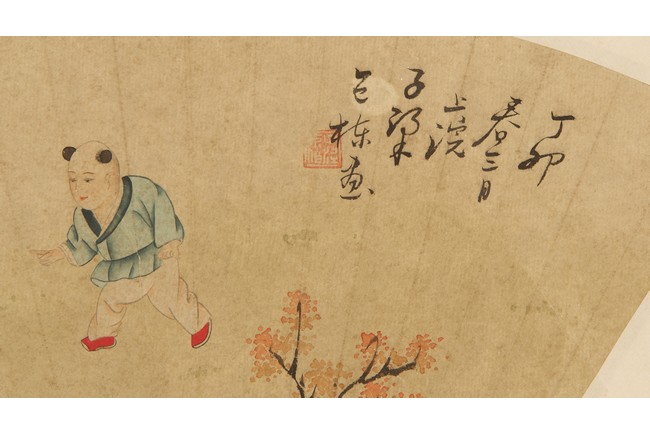 丁卯
春三月
上浣
子梁
包棟畫